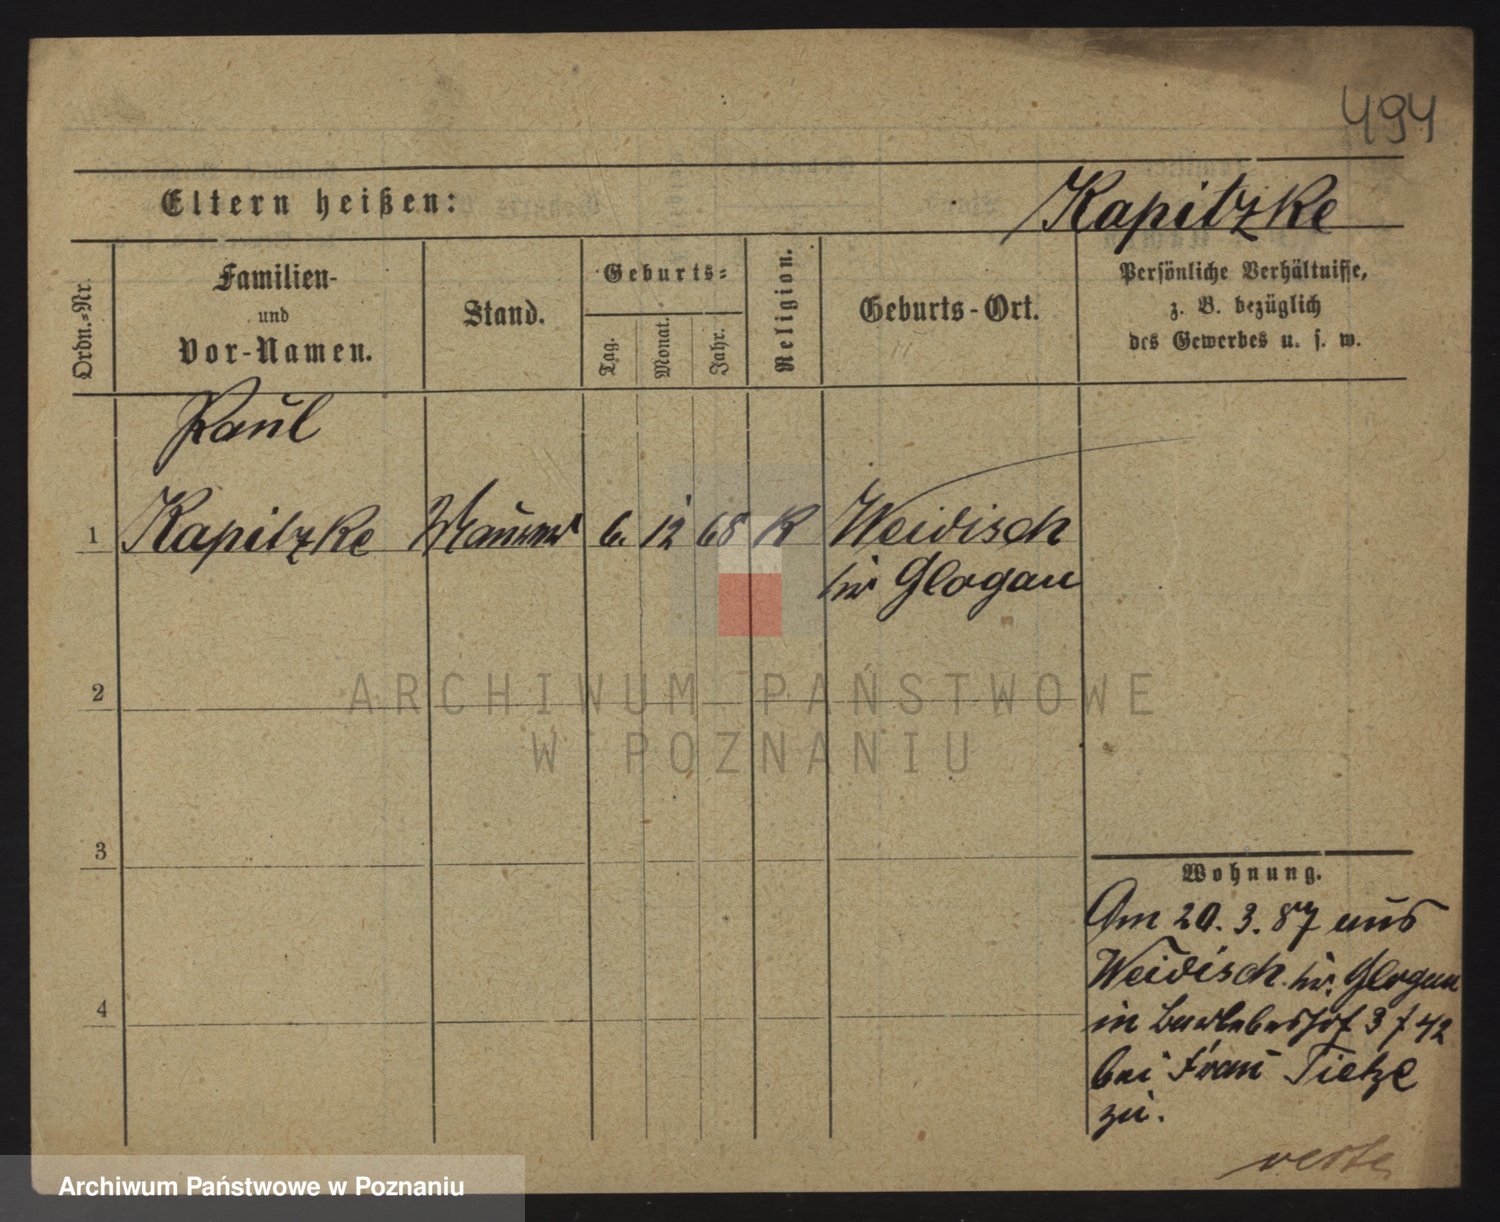 494
Eltern heißen:
Kapitzke
Ordn.-Nr.
Familien-
und
Vor-Namen.
Stand.
Geburts-
Tag.
Monat.
Jahr.
Religion.
Geburts-Ort.
Persönliche Verhältnisse,
z. B. bezüglich
des Gewerbes u. s. w.
Paul
1 Kapitzke Maurer 6. 12 68 K Weidisch
Kr Glogau
2
3
4
ARCHIWUM PAŃSTWOWE
W POZNANIU
Wohnung.
Am 20. 3. 87 aus
Weidisch Kr. Glogau
in 3 f 42
bei Frau Tietze
zu.
Archiwum Państwowe w Poznaniu